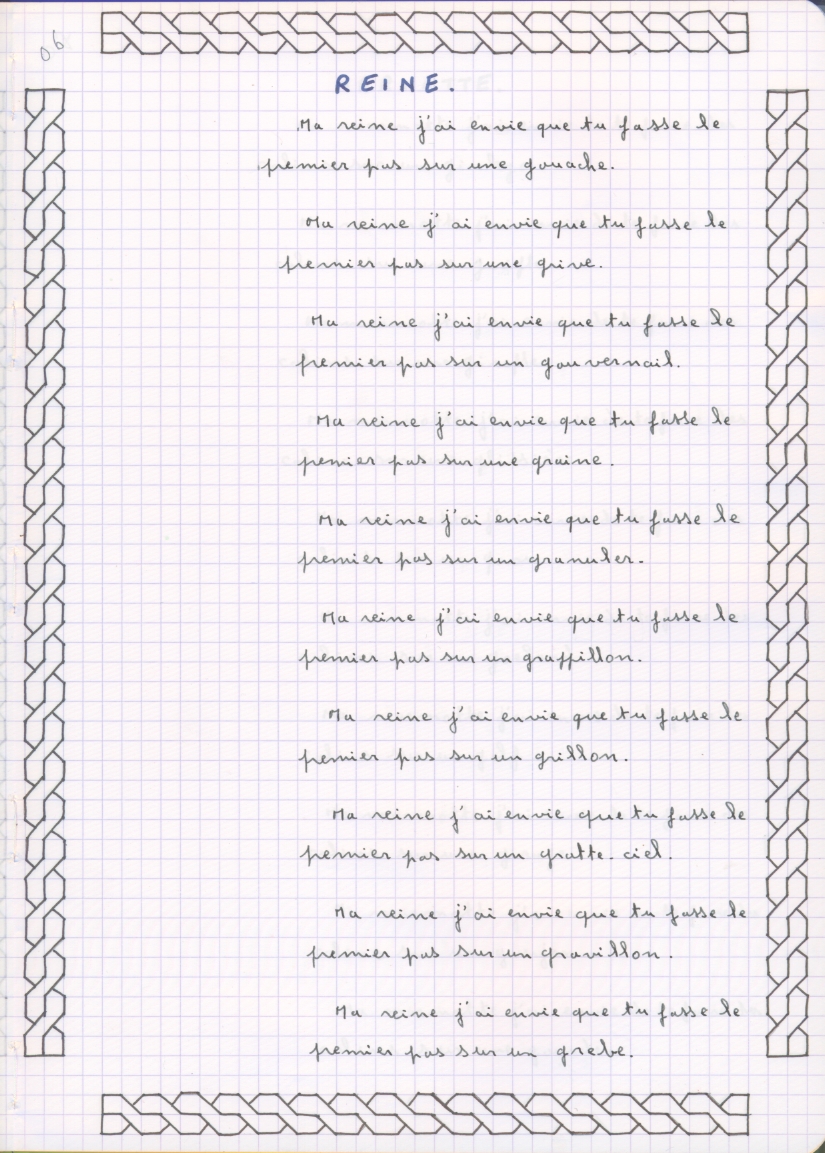 06
REINE.
Ma reine j'ai envie que tu fasse le
premier pas sur une gouache.
Ma reine j'ai envie que tu fasse le
premier pas sur une grive.
Ma reine j'ai envie que tu fasse le
premier pas sur un gouvernail.
Ma reine j'ai envie que tu fasse le
premier pas sur une graine.
Ma reine j'ai envie que tu fasse le
premier pas sur un granuler.
Ma reine j'ai envie que tu fasse le
premier pas sur un grappillon.
Ma reine j'ai envie que tu fasse le
premier pas sur un grillon.
Ma reine j'ai envie que tu fasse le
premier pas sur un gratte-ciel.
Ma reine j'ai envie que tu fasse le
premier pas sur un gravillon.
Ma reine j'ai envie que tu fasse le
premier pas sur un grebe.